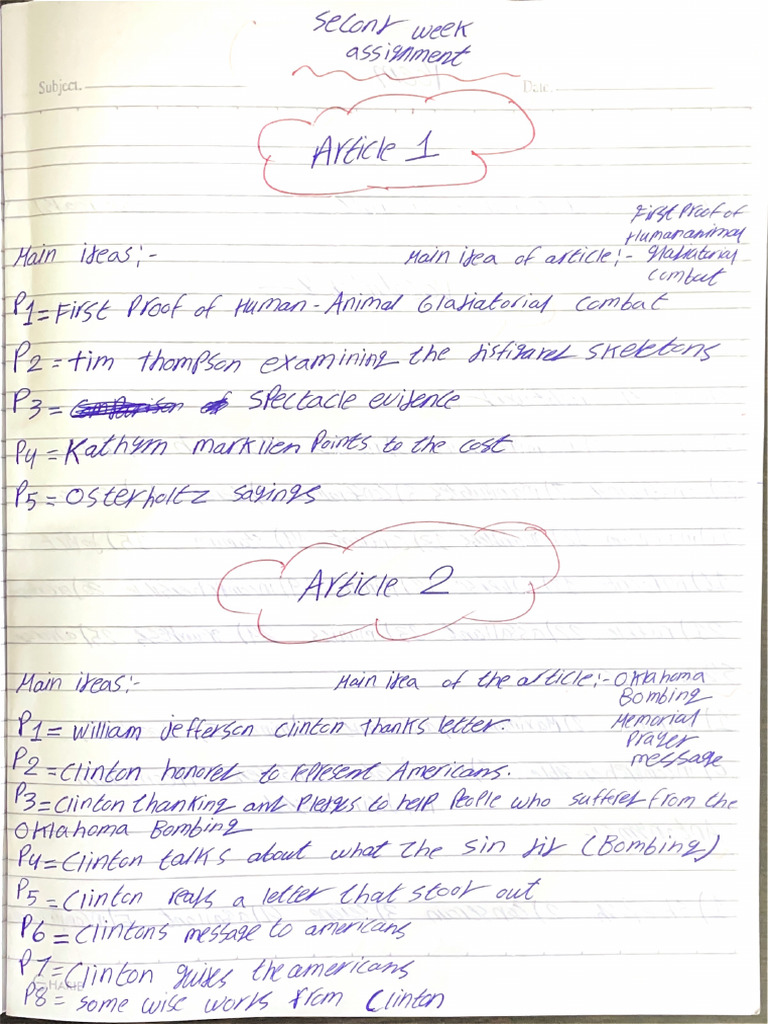 second week
assignment
Subject.
Date.
Article 1
First Proof of
Human animal
Main ideas:-
Main idea of article:- gladiatorial
combat
P1= First Proof of Human-Animal Gladiatorial combat
P2= tim thompson examining the disfigured skeletons
P3= spectacle evidence
P4= Kathym marklien Points to the cost
P5= Osterholtz sayings
Article 2
Main ideas:-
Main idea of the article:- Oklahoma
Bombing
Memorial
Prayer
message
P1= william jefferson clinton thanks letter.
P2= Clinton honored to represent Americans.
P3= Clinton thanking and Pledges to help People who suffered from the
Oklahoma Bombing
P4= Clinton talks about what the sin did (Bombing)
P5= Clinton reads a letter that stood out
P6= Clintons message to americans
P7= Clinton guides the americans
P8= some wise words from Clinton